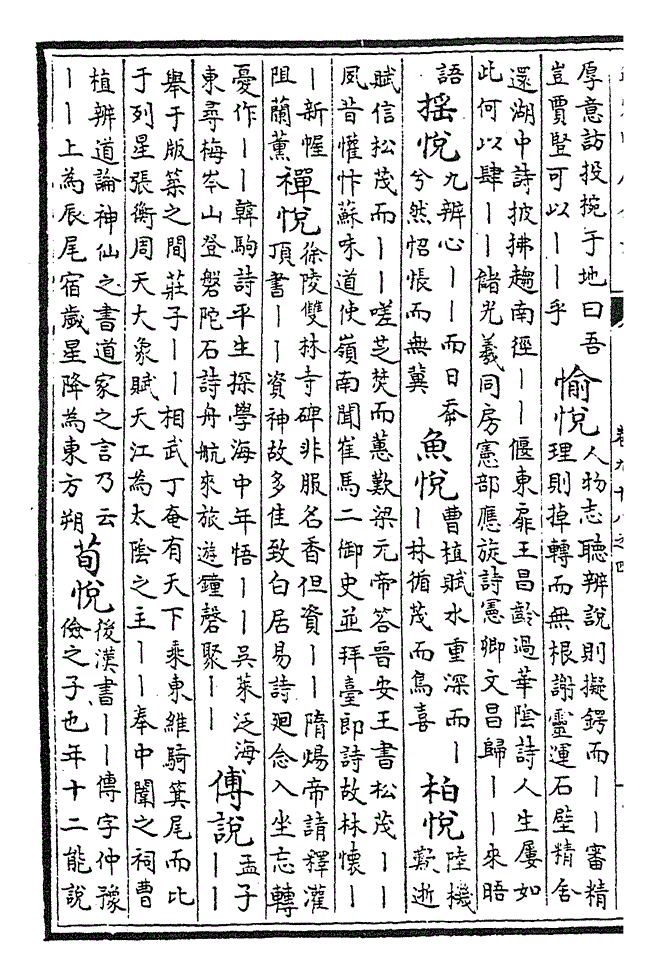 厚意訪投捥于地曰吾
豈賈豎可以丨丨乎
愉悅
人物志聽辨說則擬鍔而丨丨審精
理則掉轉而無根謝靈運石壁精舍
還湖中詩披拂趨南徑丨丨偃東扉王昌齡過華陰詩人生屢如
此何以肆丨丨儲光羲同房憲部應旋詩憲卿文昌歸丨丨來晤
語
搖悅
九辨心丨丨而日幸
兮然怊悵而無冀
魚悅
曹植賦水重深而丨
丨林循茂而鳥喜
柏悅
陸機
歎逝
賦信松茂而丨丨嗟芝焚而蕙歎梁元帝答晉安王書松茂丨丨
夙昔懽忭蘇味道使嶺南聞崔馬二御史並拜臺郎詩故林懷丨
丨新幄
阻蘭薰
禪悅
徐陵雙林寺碑非服名香但資丨丨隋煬帝請釋灌
頂書丨丨資神故多佳致白居易詩廻念入坐忘轉
憂作丨丨韓駒詩平生探學海中年悟丨丨吳萊泛海
東尋梅岑山登磐陀石詩舟航來旅遊鐘磬聚丨丨
傅說
孟子
丨丨
舉于版築之間莊子丨丨相武丁奄有天下乘東維騎箕尾而比
于列星張衡周天大象賦天江為太陰之主丨丨奉中闈之祠曹
植辨道論神仙之書道家之言乃云
丨丨上為辰尾宿歲星降為東方朔
荀悅
後漢書丨丨傳字仲豫
儉之子也年十二能說
卷九十八之四